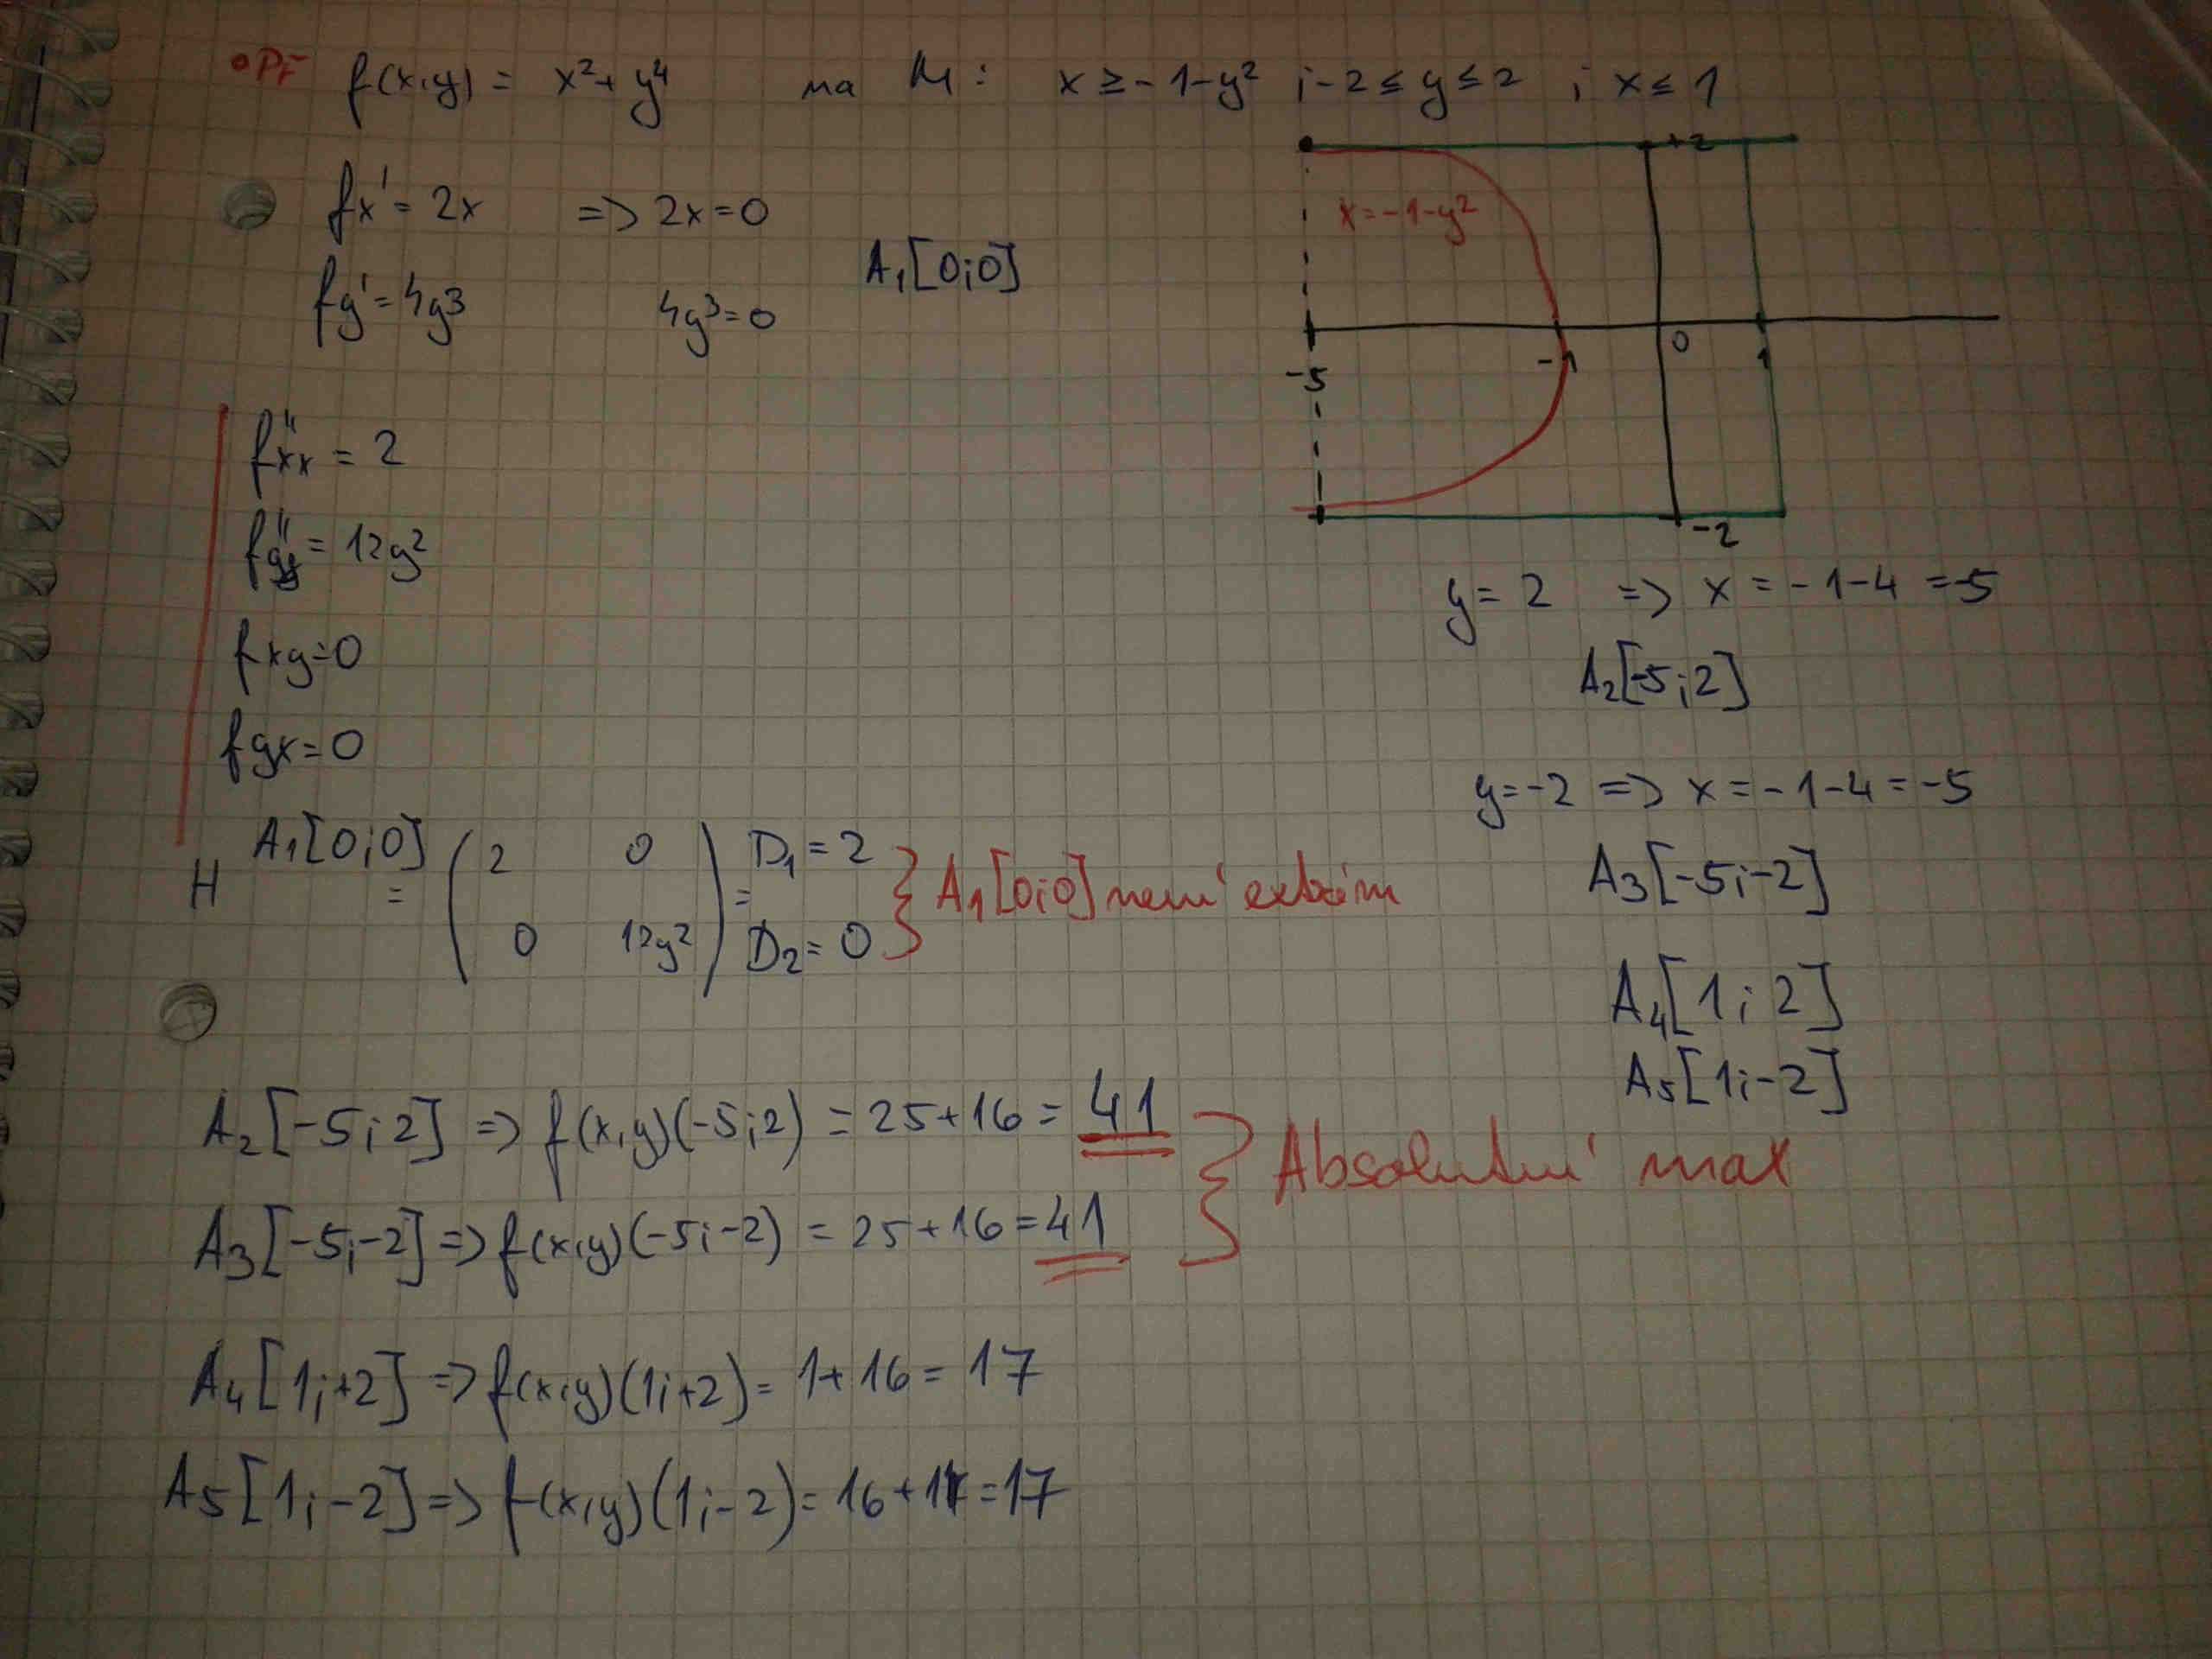 •Př f(x,y) = x²+y⁴ na M: x ≥ -1-y² ; -2 ≤ y ≤ 2 ; x ≤ 1
fx' = 2x => 2x=0
fy' = 4y³ 4y³=0
A₁[0;0]
+2
x=-1-y²
-5 -1 0 1
-2
fxx'' = 2
fyy'' = 12y²
fxy=0
fyx=0
y = 2 => x = -1-4 = -5
A₂[-5;2]
y=-2 => x = -1-4 = -5
A₃[-5;-2]
A₄[1;2]
A₅[1;-2]
H A₁[0;0] = ( 2 0 ) = D₁ = 2
( 0 12y² ) D₂ = 0
} A₁[0;0] není extrém
A₂[-5;2] => f(x,y)(-5;2) = 25+16 = 41
A₃[-5;-2] => f(x,y)(-5;-2) = 25+16 = 41
} Absolutní max
A₄[1;+2] => f(x,y)(1;+2) = 1+16 = 17
A₅[1;-2] => f(x,y)(1;-2) = 16+1 = 17